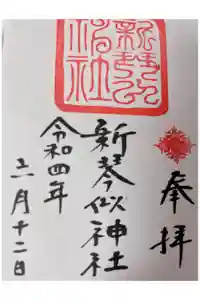 奉拝
新琴似神社
新琴似
神社
令和四年
月十二日